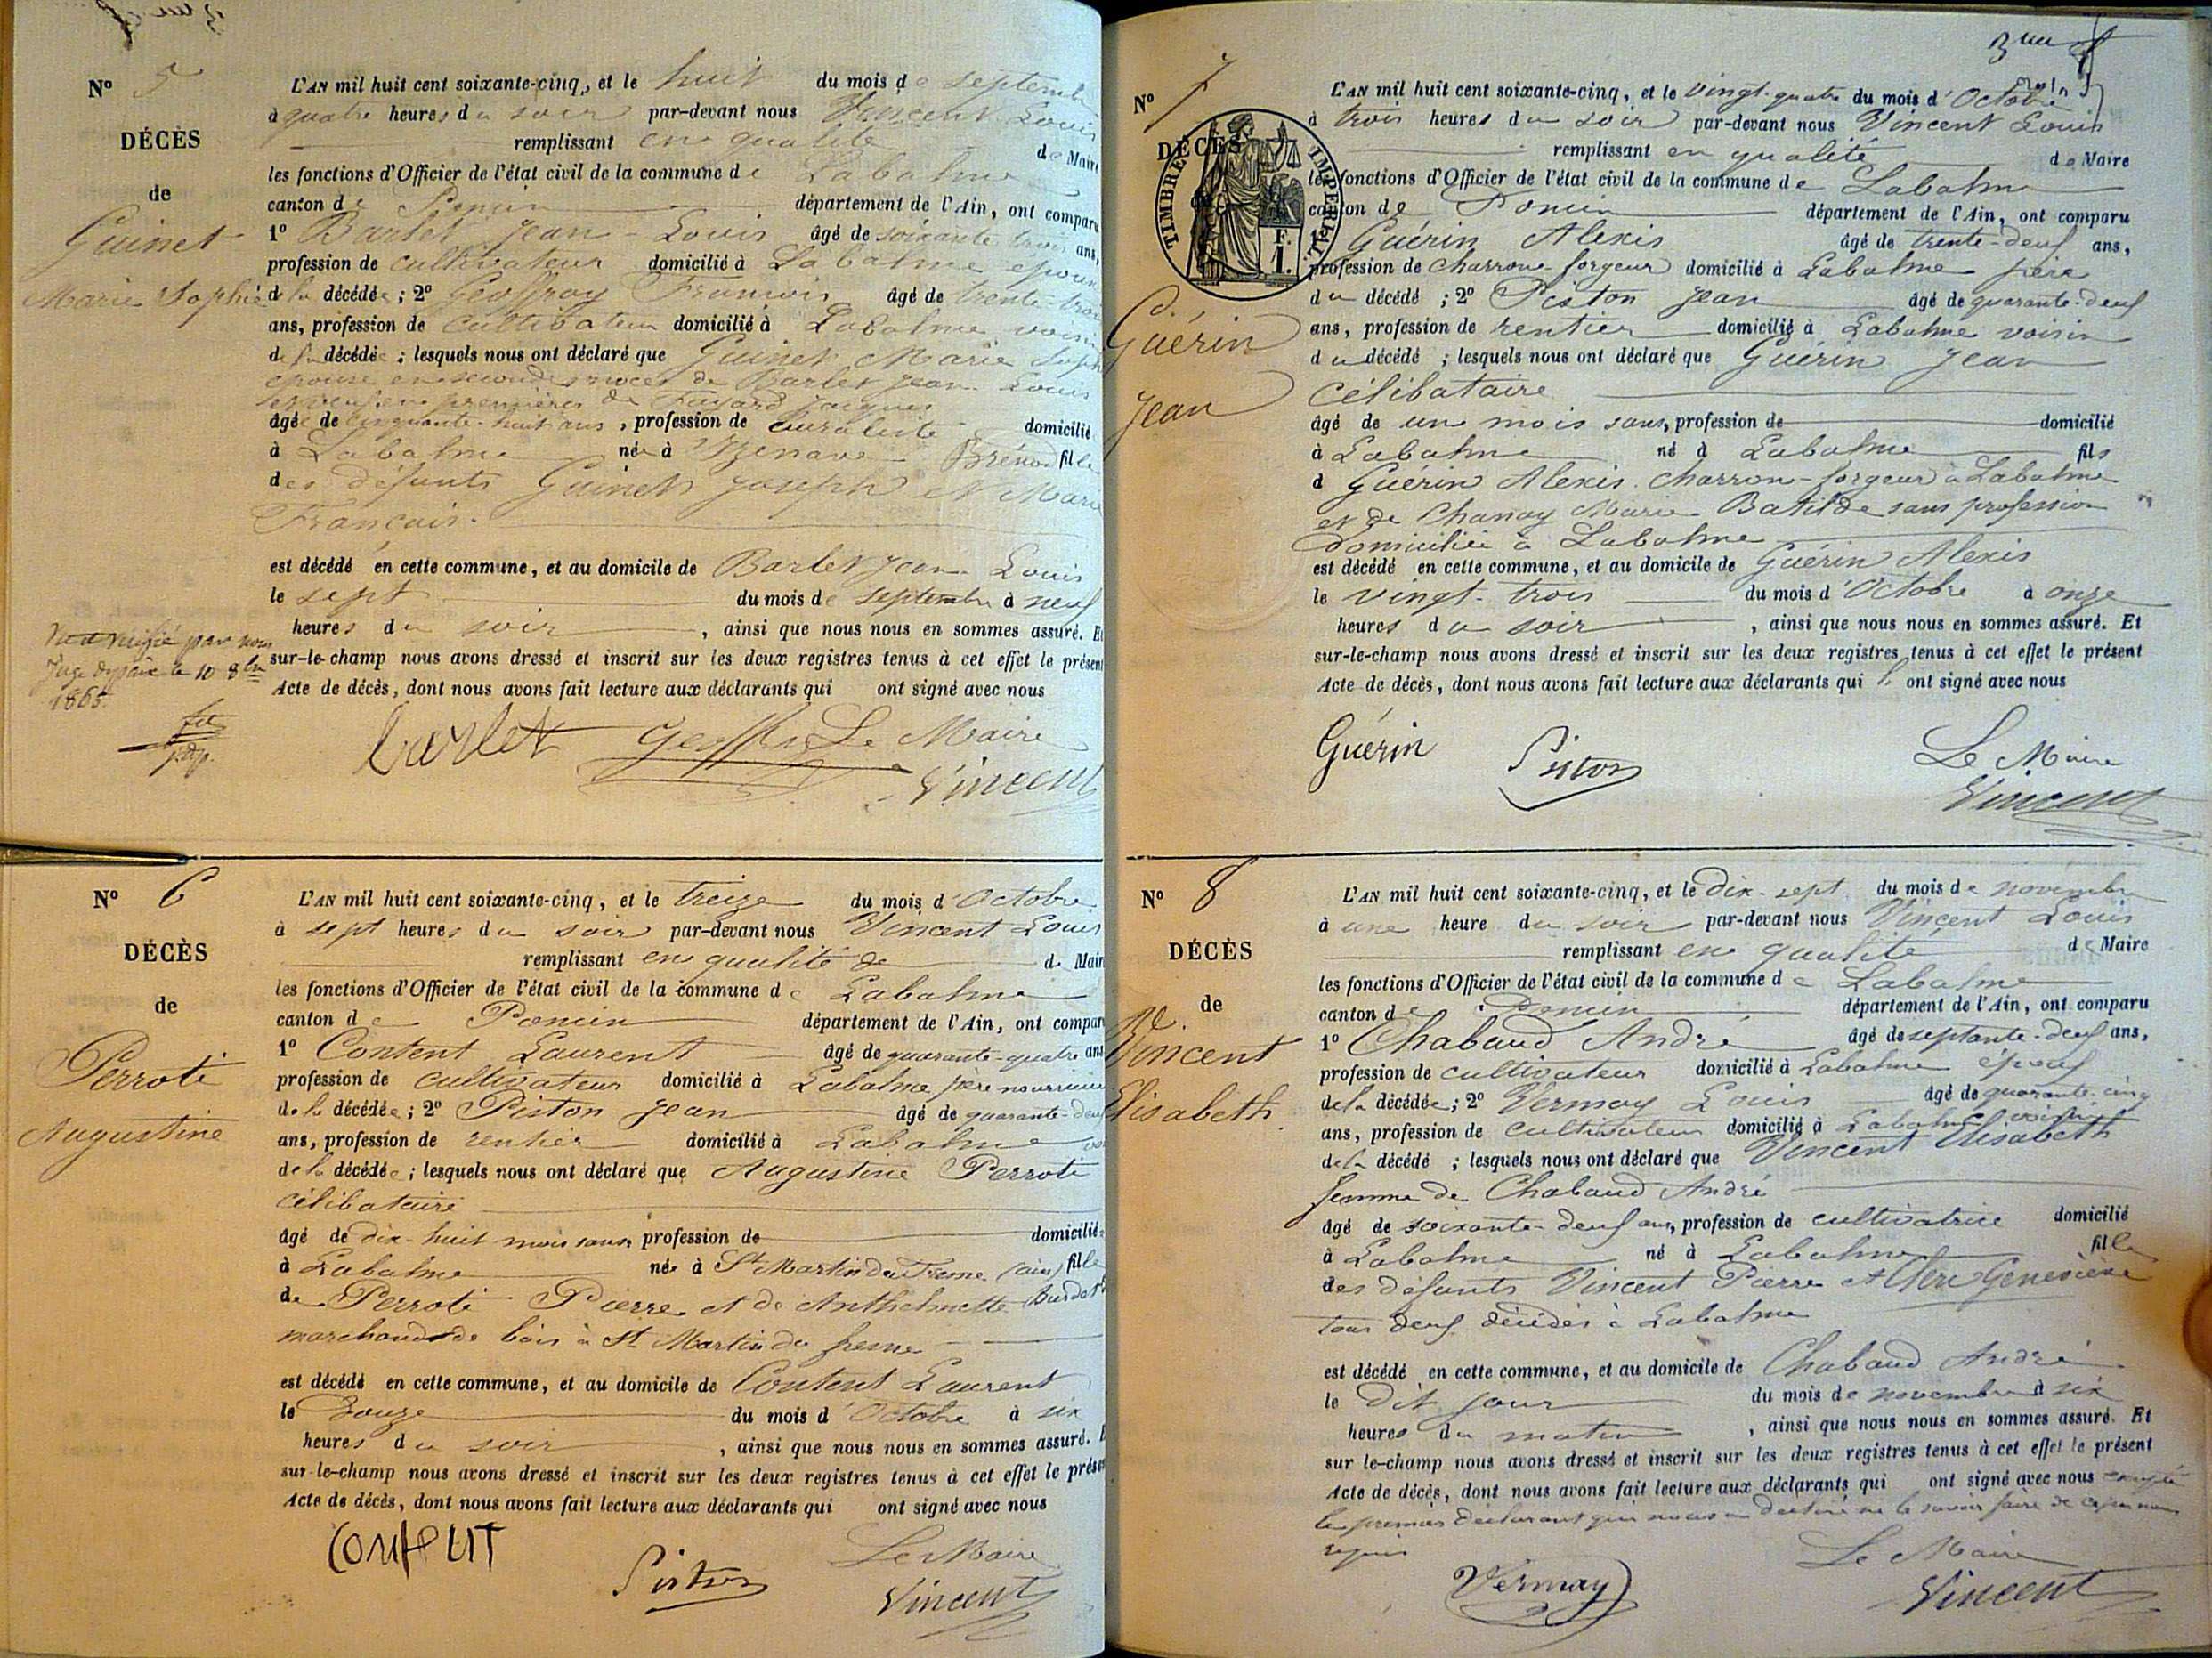 Nº 5
DÉCÈS
de
Guinet
Marie Sophie
L'AN mil huit cent soixante-cinq, et le huit du mois de septembre
à quatre heures du soir par-devant nous Vincent Louis
remplissant en qualité de Maire
les fonctions d'Officier de l'état civil de la commune de Labalme
canton de Poncin département de l'Ain, ont comparu
1º Barlet Jean-Louis âgé de soixante trois ans,
profession de cultivateur domicilié à Labalme epoux
de la décédée ; 2º Geoffray François âgé de trente-trois
ans, profession de cultivateur domicilié à Labalme voisin
de la décédée ; lesquels nous ont déclaré que Guinet Marie Soph
epouse en seconde noces de Barlet Jean Louis
et veuve en premières de Favard Jacques
âgée de cinquante-huit ans, profession de domicilié
à Labalme née à Izenave fille
des défunts Guinet Joseph et Marie
Français.
est décédé en cette commune, et au domicile de Barlet Jean Louis
le sept du mois de septembre à neuf
heures du soir, ainsi que nous nous en sommes assuré. Et
sur-le-champ nous avons dressé et inscrit sur les deux registres tenus à cet effet le présent
Acte de décès, dont nous avons fait lecture aux déclarants qui ont signé avec nous
par nous
Juge de paix le 10 8bre
1865.
barlet Geoffr Le Maire
Vincent
Nº 6
DÉCÈS
de
Perroti
Augustine
L'AN mil huit cent soixante-cinq, et le treize du mois d'Octobre
à sept heures du soir par-devant nous Vincent Louis
remplissant en qualité de de Maire
les fonctions d'Officier de l'état civil de la commune de Labalme
canton de Poncin département de l'Ain, ont comparu
1º Content Laurent âgé de quarante-quatre ans
profession de cultivateur domicilié à Labalme père nourricier
de la décédée ; 2º Piston Jean âgé de quarante-deux
ans, profession de rentier domicilié à Labalme
de la décédée ; lesquels nous ont déclaré que Augustine Perroti
célibataire
âgé de dix-huit mois sans profession de domicilié
à Labalme née à St Martin du Fresne (ain) fille
de Perroti Pierre et de Anthelmette
marchand de bois à St Martin du fresne
est décédé en cette commune, et au domicile de Content Laurent
le Douze du mois d'Octobre à six
heures du soir, ainsi que nous nous en sommes assuré.
sur-le-champ nous avons dressé et inscrit sur les deux registres tenus à cet effet le présen
Acte de décès, dont nous avons fait lecture aux déclarants qui ont signé avec nous
Content
Piston
Le Maire
Vincent
Nº 7
DÉCÈS
TIMBRE IMPERIAL
F.
1.
Guérin
Jean
L'AN mil huit cent soixante-cinq, et le vingt-quatre du mois d'Octobre
à trois heures du soir par-devant nous Vincent Louis
remplissant en qualité de Maire
les fonctions d'Officier de l'état civil de la commune de Labalme
canton de Poncin département de l'Ain, ont comparu
Guérin Alexis âgé de trente-deux ans,
profession de charron-forgeur domicilié à Labalme père
du décédé ; 2º Piston Jean âgé de quarante-deux
ans, profession de rentier domicilié à Labalme voisin
du décédé ; lesquels nous ont déclaré que Guérin Jean
célibataire
âgé de un mois sans, profession de domicilié
à Labalme né à Labalme fils
d Guérin Alexis charron-forgeur à Labalme
et de Chanay Marie Batilde sans profession
domiciliée à Labalme
est décédé en cette commune, et au domicile de Guérin Alexis
le vingt-trois du mois d'Octobre à onze
heures du soir, ainsi que nous nous en sommes assuré. Et
sur-le-champ nous avons dressé et inscrit sur les deux registres tenus à cet effet le présent
Acte de décès, dont nous avons fait lecture aux déclarants qui ont signé avec nous
Guérin
Piston
Le Maire
Vincent
Nº 8
DÉCÈS
de
Vincent
Elisabeth
L'AN mil huit cent soixante-cinq, et le dix-sept du mois de novembre
à une heure du soir par-devant nous Vincent Louis
remplissant en qualité de Maire
les fonctions d'Officier de l'état civil de la commune de Labalme
canton de Poncin département de l'Ain, ont comparu
1º Chabaud André âgé de septante-deux ans,
profession de cultivateur domicilié à Labalme époux
de la décédée ; 2º Vermay Louis âgé de quarante-cinq
ans, profession de cultivateur domicilié à Labalme voisin
de la décédé ; lesquels nous ont déclaré que Vincent Elisabeth
femme de Chabaud André
âgé de soixante-deux ans, profession de cultivatrice domicilié
à Labalme né à Labalme fille
des défunts Vincent Pierre et Geneviève
tous deux décédés à Labalme
est décédé en cette commune, et au domicile de Chabaud André
le dit jour du mois de novembre à six
heures du matin, ainsi que nous nous en sommes assuré. Et
sur le-champ nous avons dressé et inscrit sur les deux registres tenus à cet effet le présent
Acte de décès, dont nous avons fait lecture aux déclarants qui ont signé avec nous excepté
le premier déclarant qui nous a déclaré ne le savoir faire de ce par nous
requis
Vermay
Le Maire
Vincent